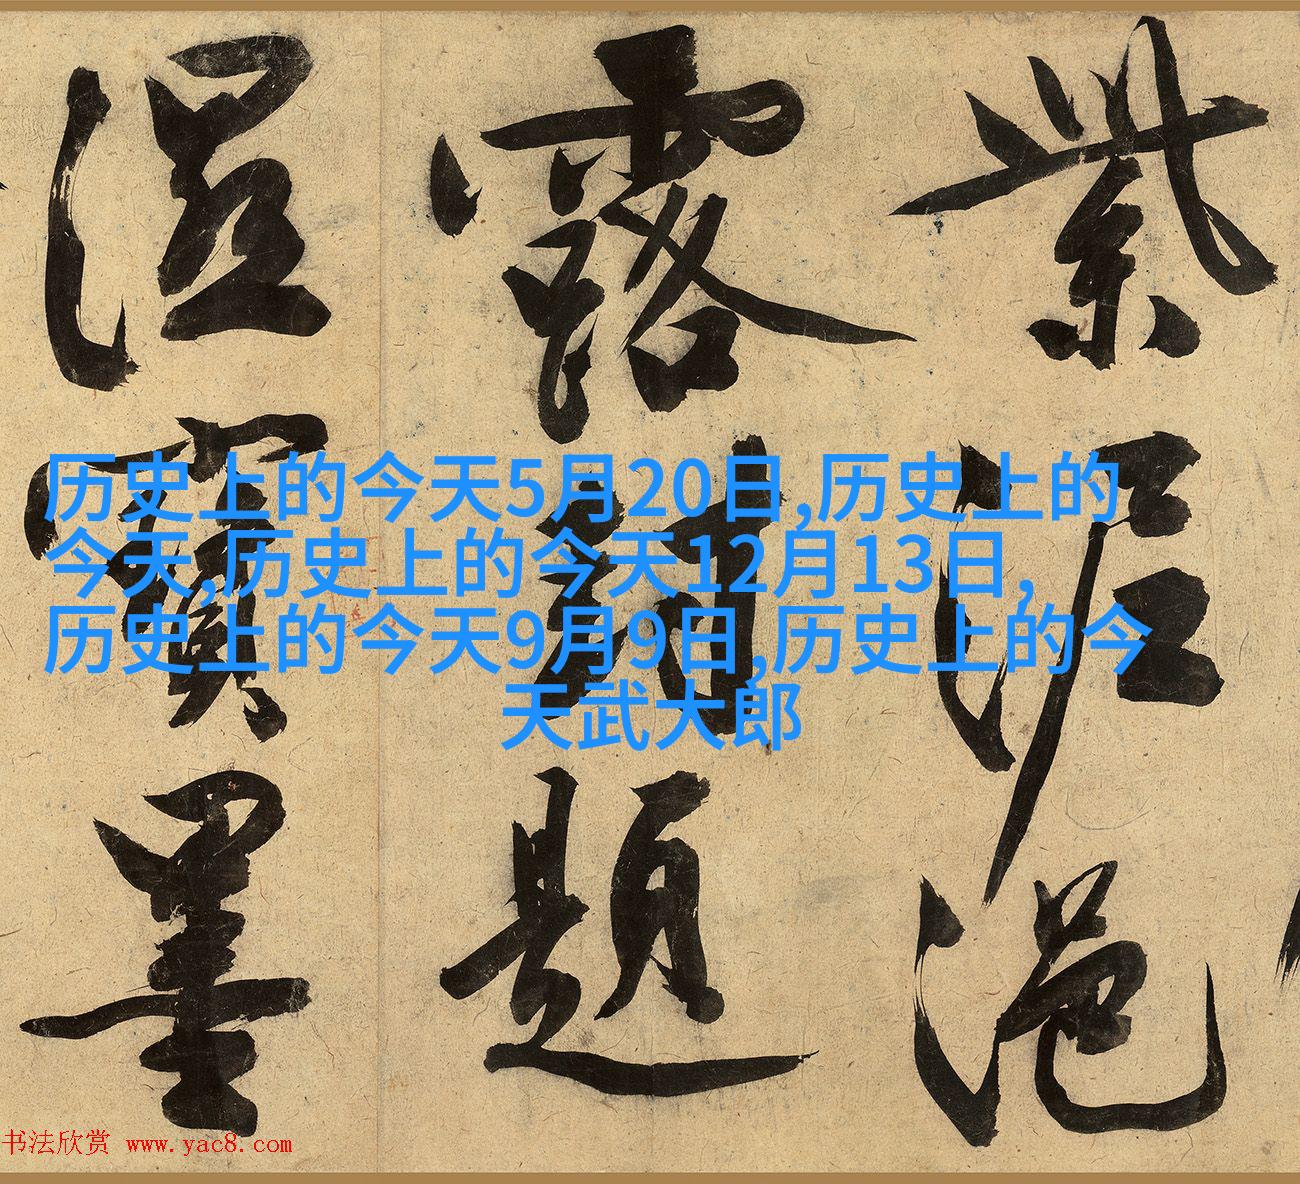 紫泥浥
露封題
湿寶墨
历史上的今天5月20日,历史上的
今天,历史上的今天12月13日,
历史上的今天9月9日,历史上的今
天武大郎
书法欣赏 www.yac8.com